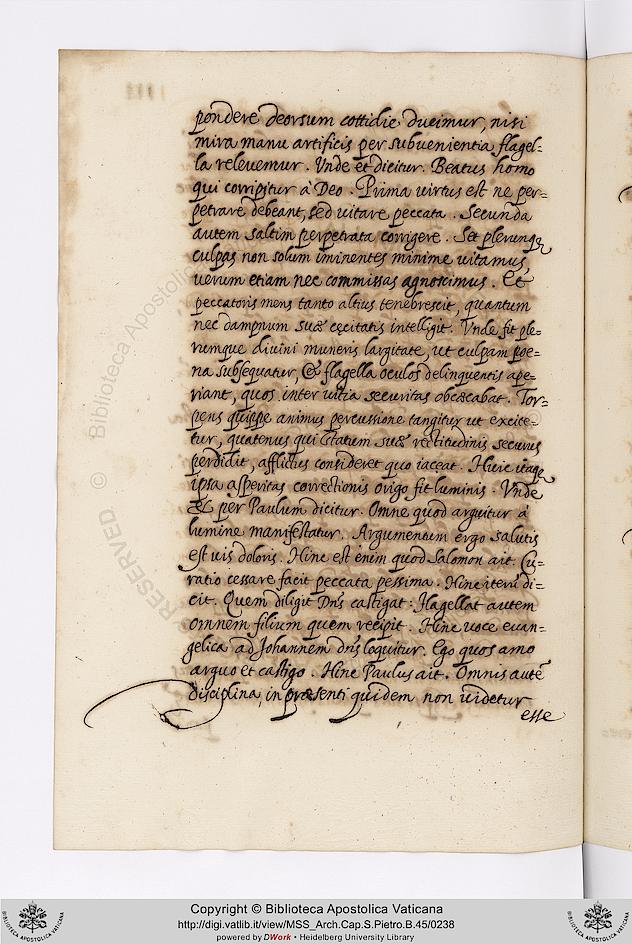 pondere deorsum cottidie ducimur, nisi
mira manu artificis per subuenientia flagel=
la releuemur. Vnde et dicitur. Beatus homo
qui corripitur à Deo. Prima uirtus est ne per=
petrare debeant, sed uitare peccata. Secunda
autem saltim perpetrata corrigere. Set plerunqȝ
culpas non solum iminentes minime uitamus,
uerum etiam nec commissas agnoscimus. Et
peccatoris mens tanto altius tenebrescit, quantum
nec dampnum suæ cęcitatis intelligit. Vnde fit ple=
rumque diuini muneris largitate, ut culpam poe=
na subsequatur, & flagella oculos delinquentis ape=
riant, quos inter uitia securitas obcæcabat. Tor=
pens quippe animus percussione tangitur ut excite=
tur, quatenus qui statum suæ rectitudinis securus
perdidit, afflictus consideret quo iaceat. Huic itaqȝ
ipsa asperitas correctionis origo fit luminis. Vnde
& per Paulum dicitur. Omne quod arguitur à
lumine manifestatur. Argumentum ergo salutis
est uis doloris. Hinc est enim quod Salomon ait. Cu=
ratio cessare facit peccata pessima. Hinc iterũ di=
cit. Quem diligit Dñs castigat: flagellat autem
omnem filium quem recipit. Hinc uoce euan=
gelica ad Johannem dñs loquitur. Ego quos amo
arguo et castigo. Hinc Paulus ait. Omnis autẽ
disciplina, in præsenti quidem non uidetur
esse
RESERVED © Biblioteca Apostolica
Copyright © Biblioteca Apostolica Vaticana
http://digi.vatlib.it/view/MSS_Arch.Cap.S.Pietro.B.45/0238
powered by DWork • Heidelberg University Library
BIBLIOTECA APOSTOLICA VATICANA
BIBLIOTECA APOSTOLICA VATICANA